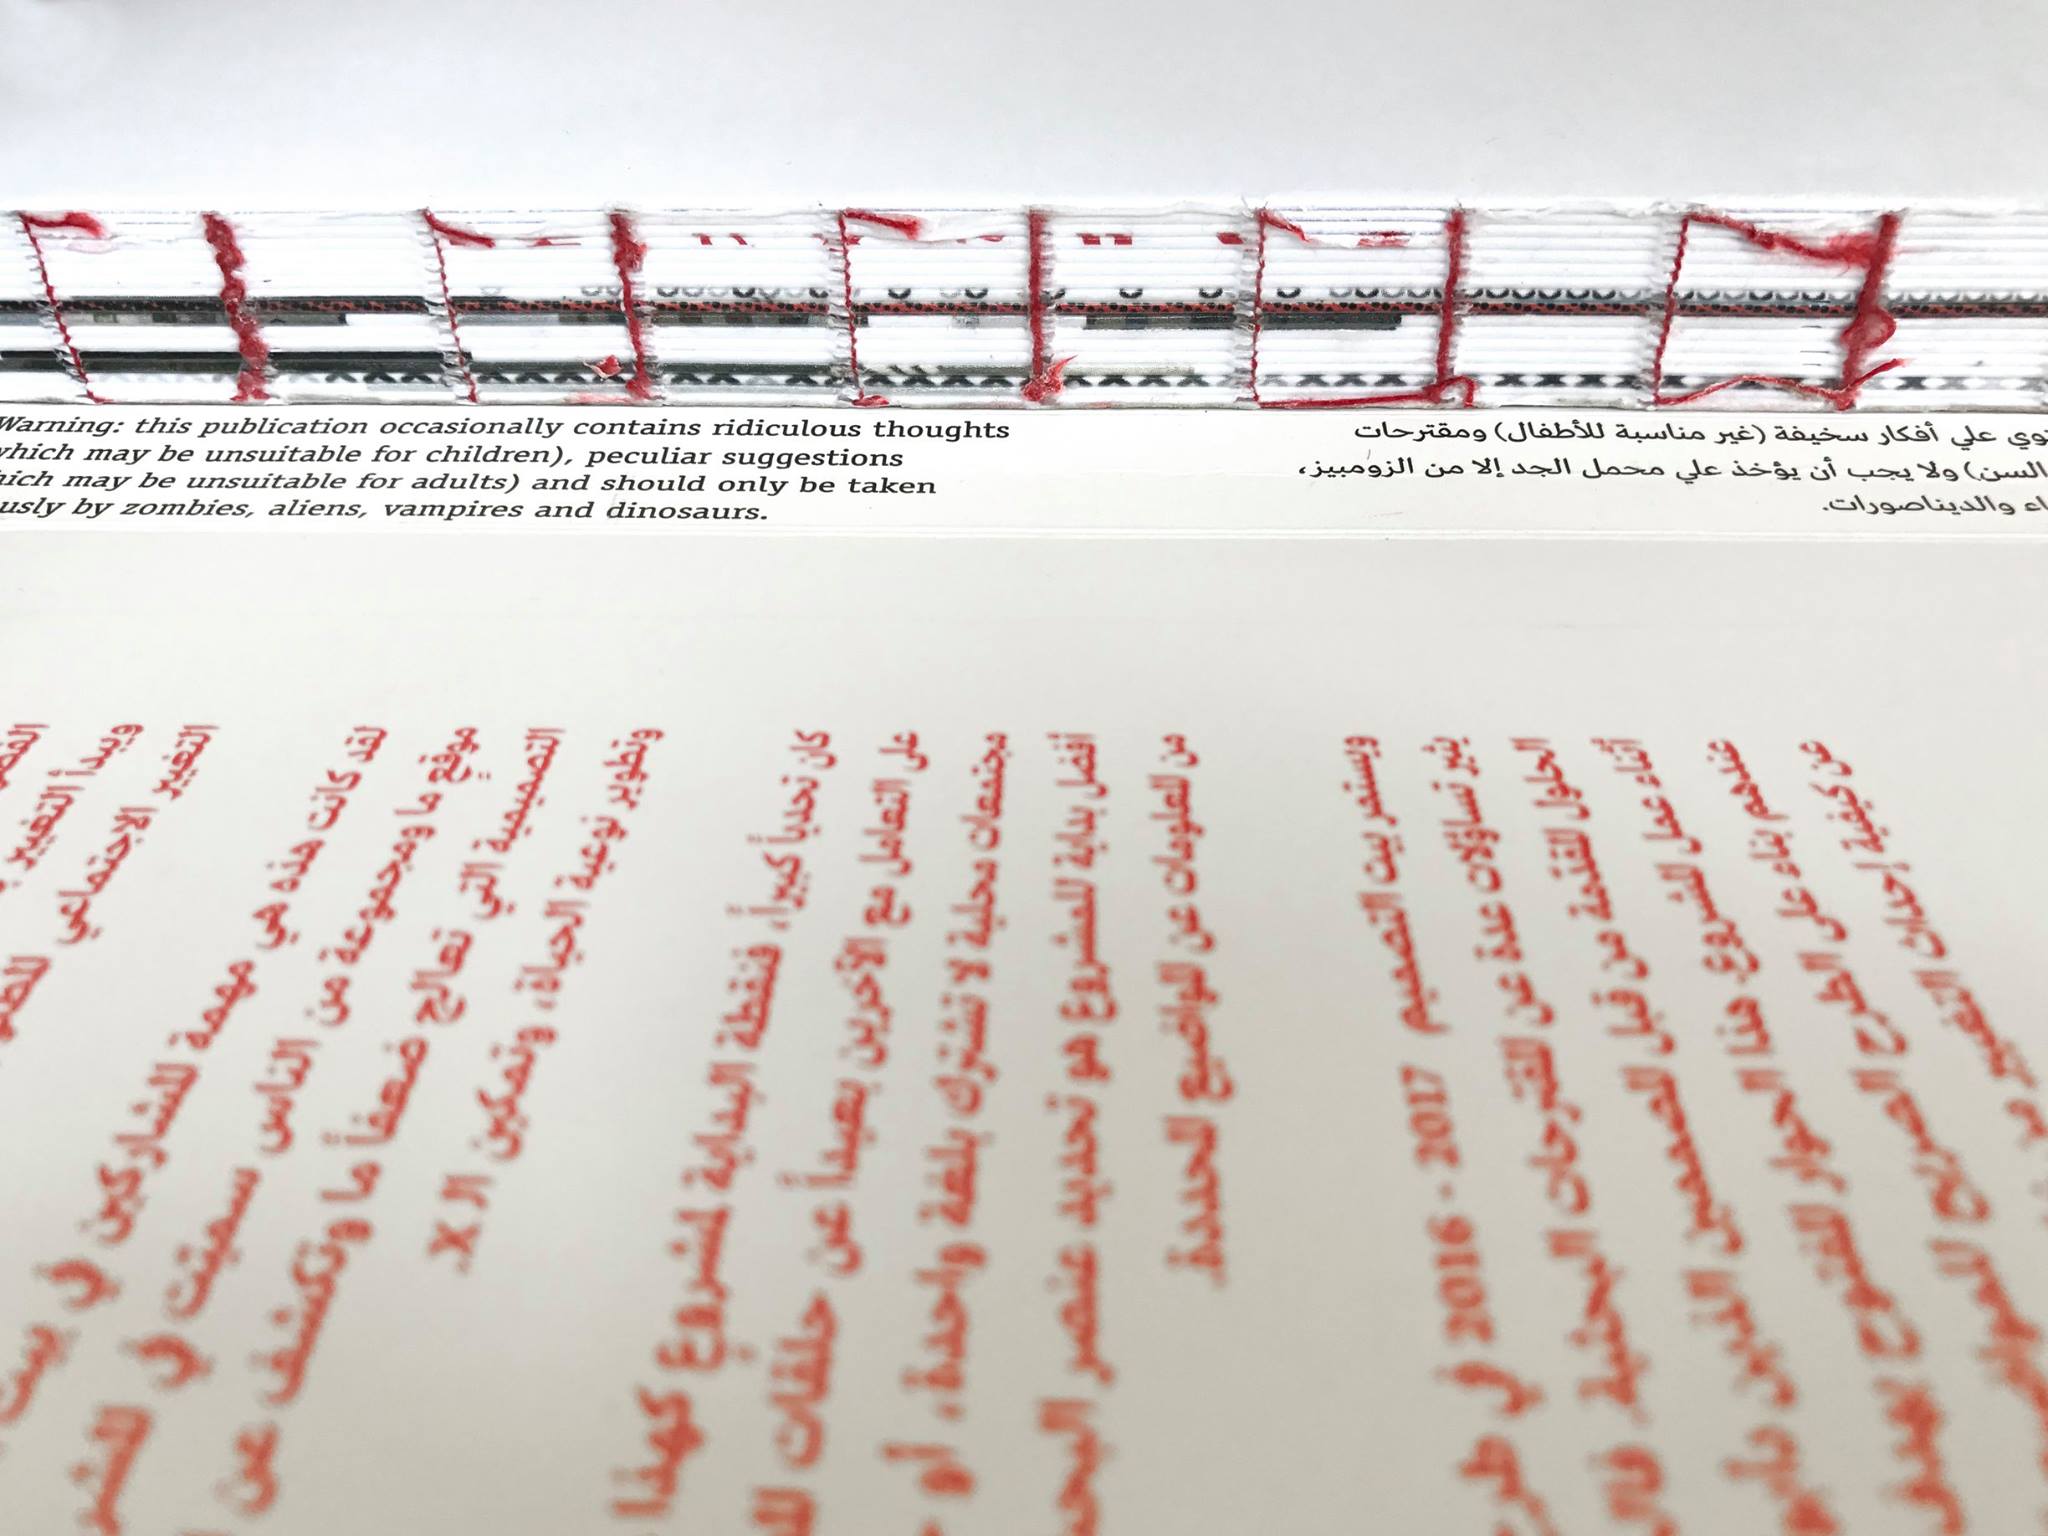 Warning: this publication occasionally contains ridiculous thoughts
which may be unsuitable for children), peculiar suggestions
may be unsuitable for adults) and should only be taken
by zombies, aliens, vampires and dinosaurs.
علي أفكار سخيفة (غير مناسبة للأطفال) ومقترحات
السن) ولا يجب أن يؤخذ علي محمل الجد إلا من الزومبيز،
والديناصورات.
ويبدأ التغيير
التغيير الاجتماعي
لقد كانت هذه هي مهمة المشاركين في بيت
موقعٍ ما ومجموعة من الناس سميتت في
التصميمية التي تعالج ضعفاً ما وتكشف عن
وتطوير نوعية الحياة، وتمكين الـ X.
كان تحدياً كبيراً، فنقطة البداية لمشروعٍ كهذا
على التعامل مع الآخرين بعيداً عن حلقات
مجتمعات محلية لا تشترك بلغة واحدة، أو
أفضل بداية للمشروع هو تحديد عنصر
من المعلومات عن المواضيع المحددة.
ويستمر بيت التصميم 2017 - 2016 في
يثير تساؤلات عدة عن المقترحات البحثية
الحلول المقدمة من قبل المصممين الذين
أثناء عمل المشروع. هذا الحوار المفتوح
عندهم بناء على الطرح الصريح
عن كيفية إحداث التغيير